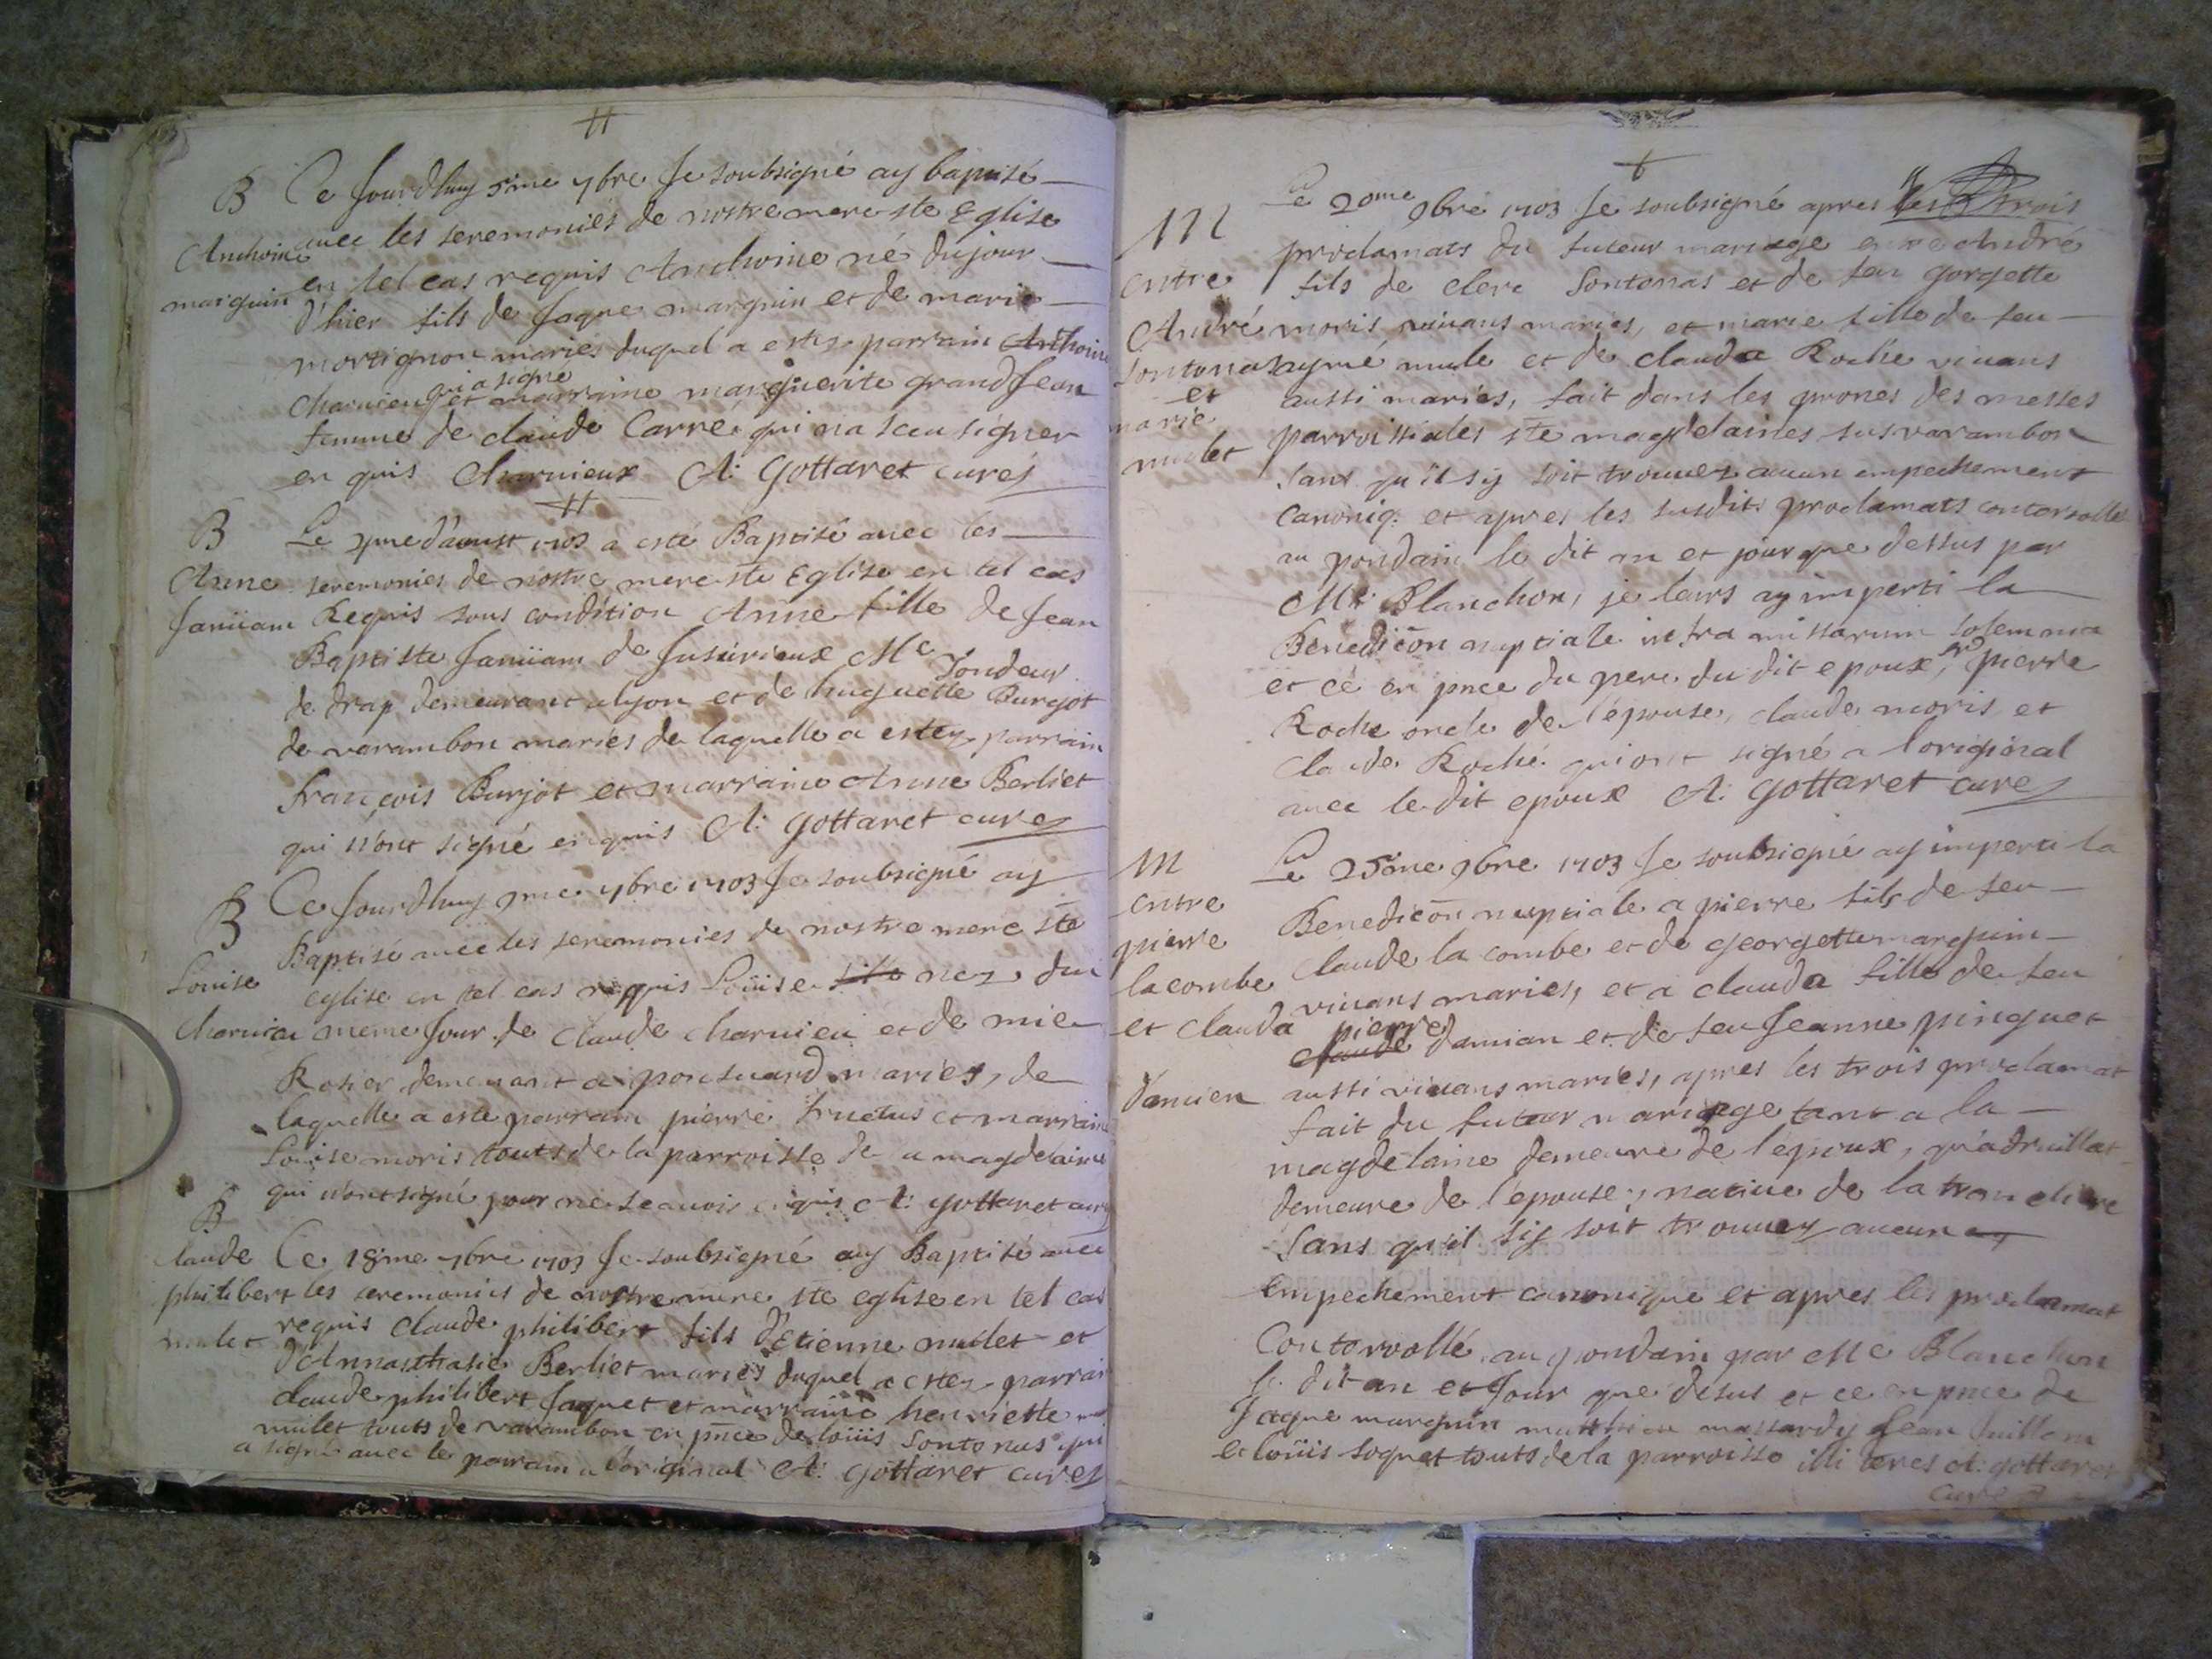 B Ce Jourdhuy 5me 7bre Je soubsigné ay baptisé
avec les seremonies de nostre mere ste Eglise
Anthoine
en tel cas requis Anthoine né du jour
marguin
d'hier fils de Jaque marguin et de marie
mortignon maries duquel a estez parrain Anthoine
qui a signe
charvieux et marraine marguerite grandJean
femme de claude Carré qui na sceu signer
en quis Charvieux A: Gottaret curé
B Le d'aoust 1703 a esté Baptisé avec les
Anne seremonies de nostre mere ste Eglise en tel cas
Janiiam Requis sous condition Anne fille de Jean
Baptiste Janiiam de Jusurieux Me
Tondeur
de drap demeurant a lyon et de huguette Burjot
de varambon mariés de laquelle a estez parrain
françois Burjot et marraine Anne Berliet
qui n'ont signé enquis A: Gottaret curé
B Ce Jourdhuy 7bre 1703 Je soubsigné ay
Baptisé avec les seremonies de nostre mere ste
Louise eglise en tel cas requis Loüise nez du
Charvieu meme Jour de Claude charvieu et de mie
Rosier demeurant a mariés, de
laquelle a esté parrain pierre et marraine
Louise moris touts de la parroisse de la magdelaine
qui n'ont signé pour ne scavoir enquis A: gottaret curé
B
claude Ce 18me 7bre 1703 Je soubsigné ay Baptisé avec
philibert les ceremonies de nostre mere ste eglise en tel cas
mulet requis claude philibert fils d'Etienne mulet et
d'Annasthasie Berliet mariés duquel a estez parrain
claude philibert Jaquet et marraine henriette
mulet touts de varambon en pnce de loüis Sontonas qui
a signé avec le parrain a l'original A: Gottaret curé
Le 20me 9bre 1703 Je soubsigné apres les trois
M proclamats du futeur mariage entre André
entre fils de clere Sontonas et de feu gorgette
André moris vivans mariés, et marie fille de feu
Sontonas mule et de clauda Roche vivans
et aussi mariés, fait dans les prones des messes
marie parroissiales ste magdelaines sus varambon
mulet sans qu'il s'y soit trouvez aucun empechement
canoniq. et apres les susdits proclamats contorollé
au pondain le dit an et jour que dessus par
Me Blanchon, je leurs ay imperti la
Benediction nuptiale intra missarum solemnia
et cé en pnce du pere du dit epoux, pierre
Roche oncle de l'épouse, claude moris et
claude Roché qui ont signé a l'original
avec le dit epoux A: gottaret curé
M Le 25me 9bre 1703 Je soubsigné ay imperti la
entre Benediction nuptiale a pierre fils de feu
pierre Claude la combe et de georgette marguin
lacombe vivans mariés, et a clauda fille de feu
et clauda pierre
claude damian et de feu Jeanne pinguet
damien aussi vivans mariés, apres les trois proclamat
fait du futur mariage tant a la
magdelaine demeure de l'epoux, qu'a druillat
demeure de l'epouse, native de la tranclière
Sans qu'il s'y soit trouvez aucun
empechement canonique et apres les proclamat
Contorollé au pondain par Me Blanchon
le dit an et Jour que désus et ce en pnce de
Jaque marguin matthieu massardy Jean
et loüis soquet touts de la parroisse illiteres A: gottaret
curé